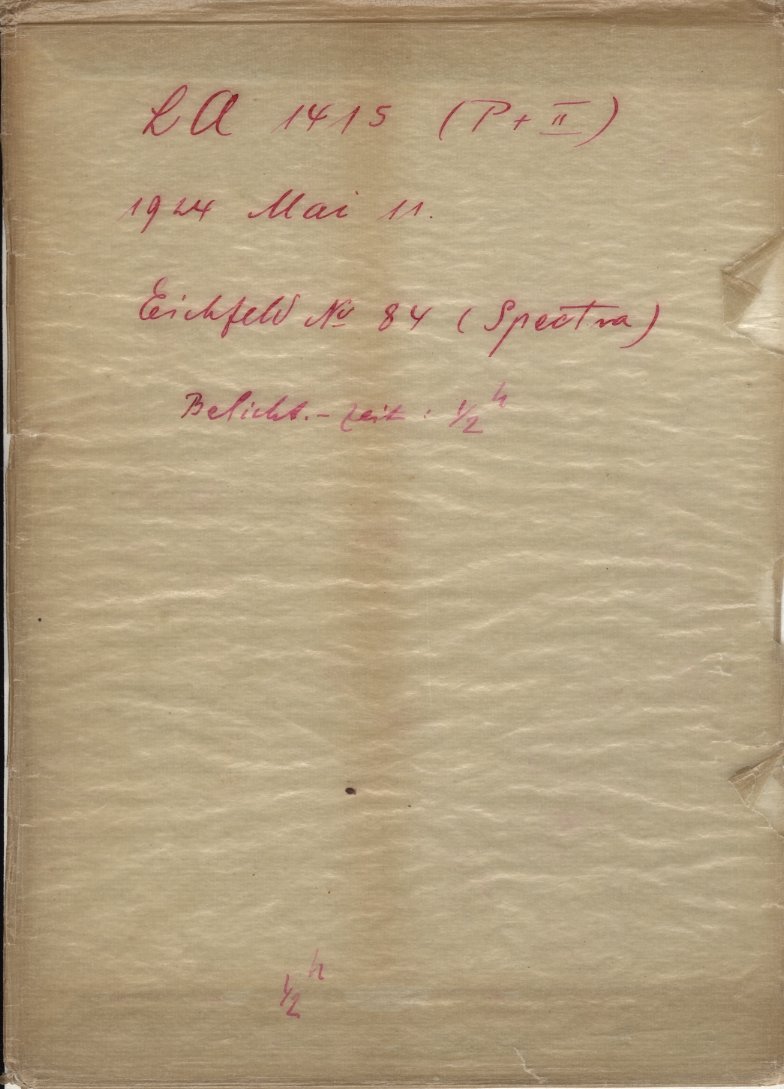 LA 1415 (P + II)
1924 Mai 11.
Eichfeld No 84 (Spectra)
Belicht.-zeit: 1/2 h
1/2 h